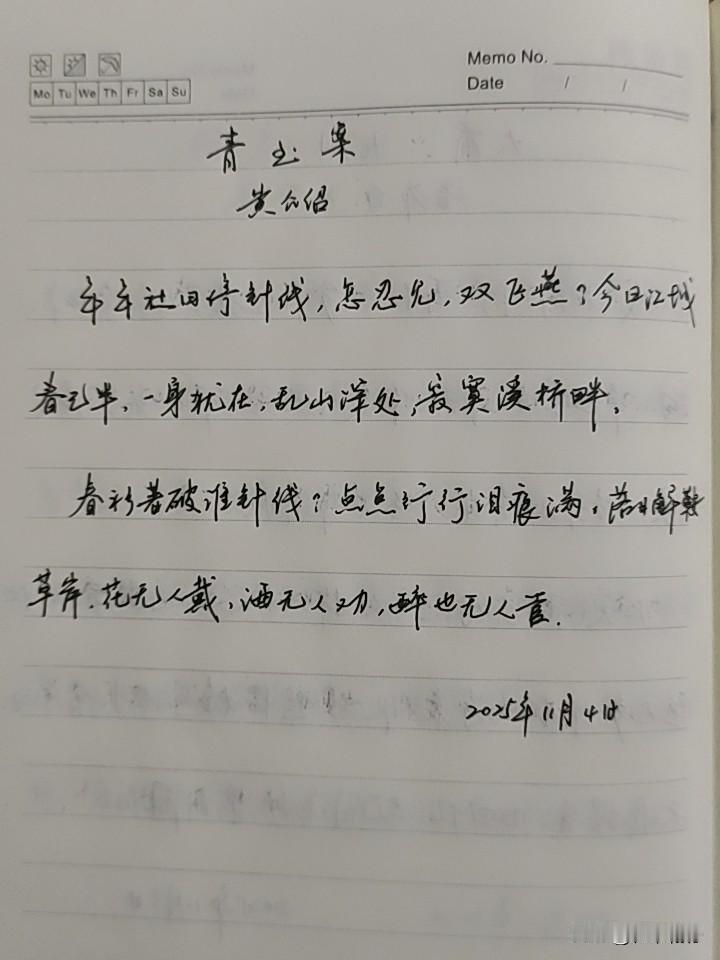 Memo No.
Mo Tu We Th Fr Sa Su
Date / /
青玉案
黄公绍
年年社日停针线,怎忍见,双飞燕?今日江城
春已半,一身犹在,乱山深处,寂寞溪桥畔。
春衫著破谁针线?点点行行泪痕满。落日解鞍
草岸。花无人戴,酒无人劝,醉也无人管.
2025年11月4日